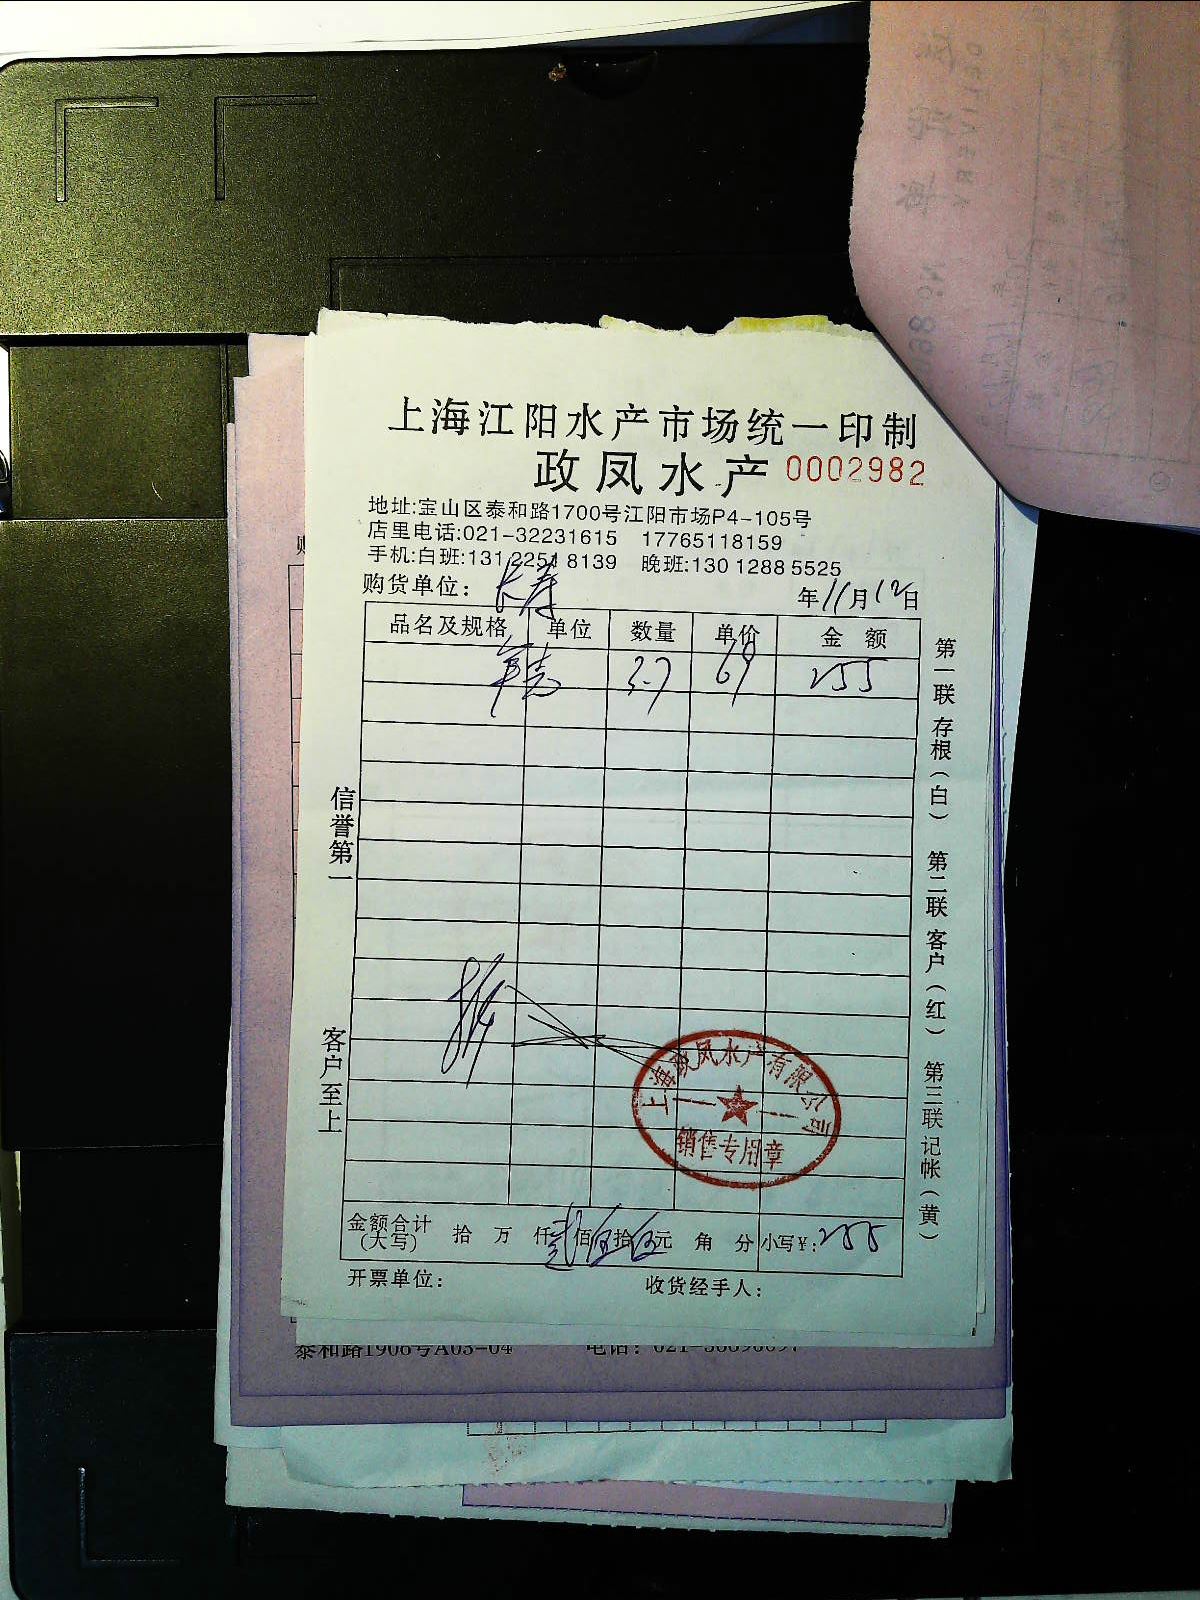 上海江阳水产市场统一印制
政凤水产 0002982
地址:宝山区泰和路1700号江阳市场P4-105号
店里电话:021-32231615 17765118159
手机:白班:131 2251 8139 晚班:130 1288 5525
购货单位: 长寿
年11月12日
品名及规格 单位 数量 单价 金额
3.7 69 255
信誉第一
客户至上
第一联 存根(白) 第二联 客户(红) 第三联 记帐(黄)
上海政凤水产有限公司
销售专用章
金额合计(大写) 拾 万 仟 贰佰伍拾伍元 角 分 小写¥: 255
开票单位: 收货经手人:
泰和路1908号A03-04